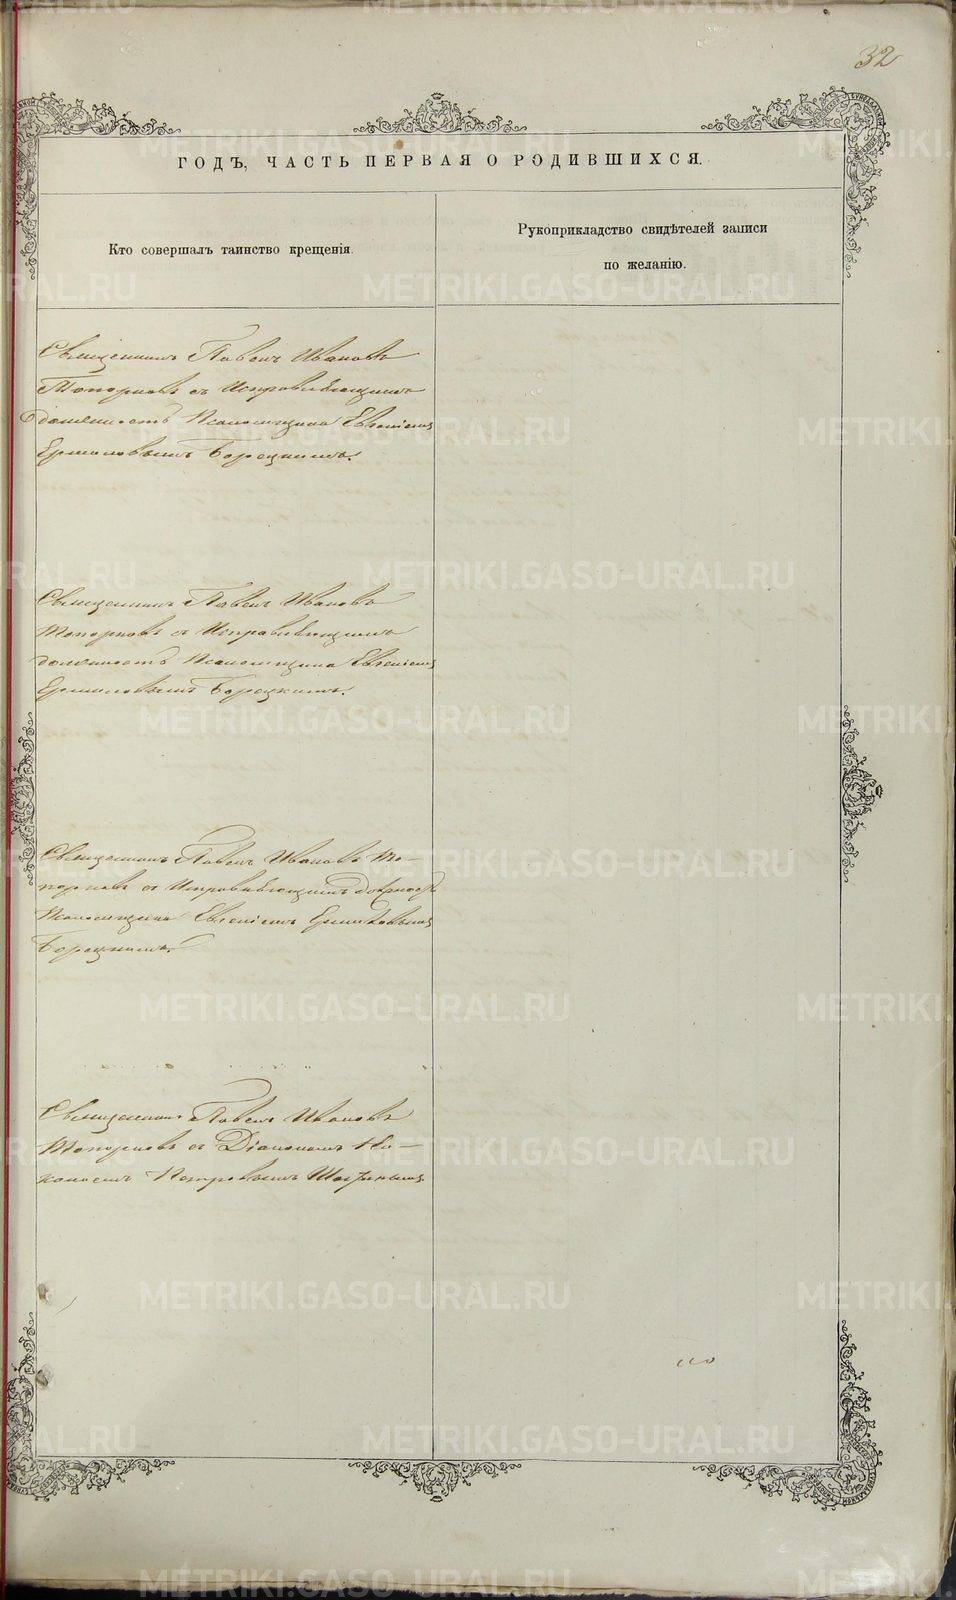 32
ГОДЪ, ЧАСТЬ ПЕРВАЯ О РОДИВШИХСЯ.
Кто совершалъ таинство крещенія.
Рукоприкладство свидѣтелей записи
по желанію.
Священникъ Павелъ Ивановъ
Топорковъ съ Исправляющимъ
должность Псаломщика Евгеніемъ
Ермиловымъ Борецкимъ.
Священникъ Павелъ Ивановъ
Топорковъ съ Исправляющимъ
должность Псаломщика Евгеніемъ
Ермиловымъ Борецкимъ.
Священникъ Павелъ Ивановъ То-
порковъ съ Исправляющимъ должность
Псаломщика Евгеніемъ Ермиловымъ
Борецкимъ.
Священникъ Павелъ Ивановъ
Топорковъ съ Діакономъ
Петровымъ
METRIKI.GASO-URAL.RU